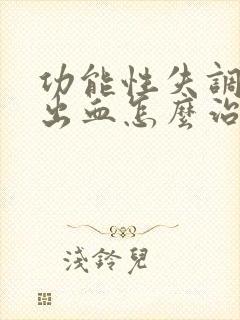 功能性失調
出血怎麼治
淺鈴兒